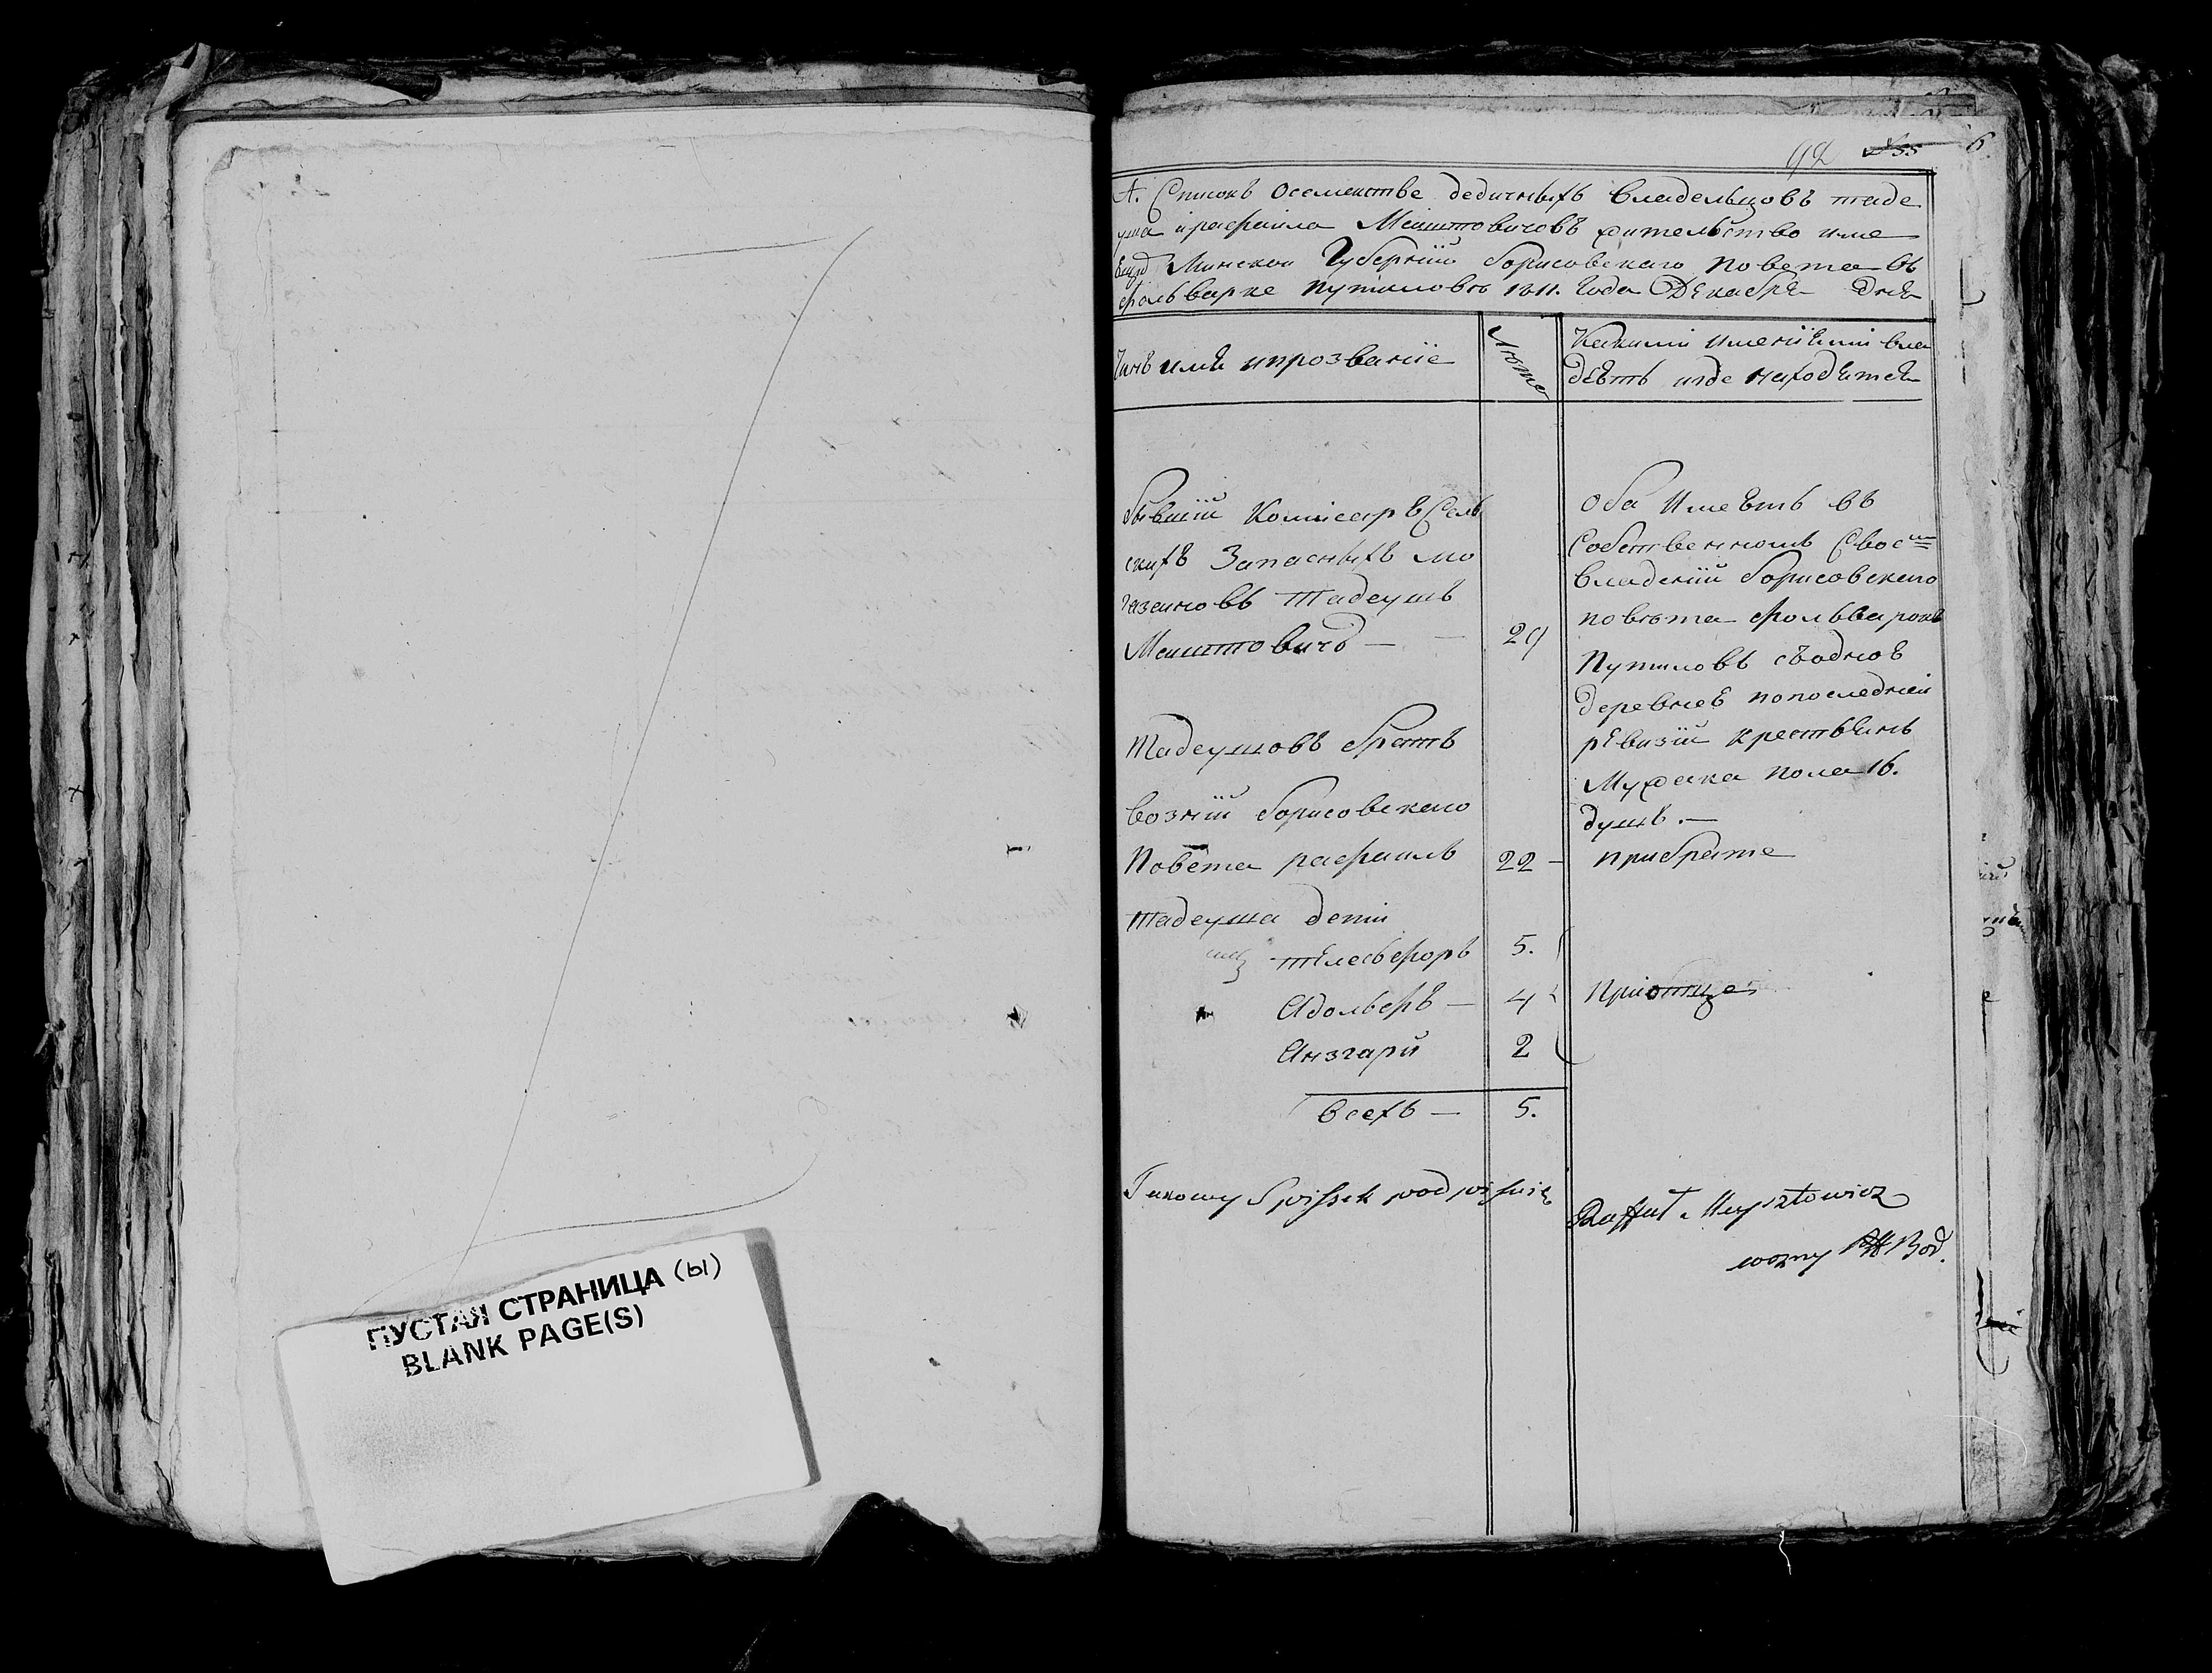 ПУСТАЯ СТРАНИЦА (ы)
BLANK PAGE(S)
92 6
А. Списокъ осемействе дедичныхъ владельцовъ таде
уша ирафаила Меиштовичовъ жительство име
Минскои Губернїи борисовскаго повета въ
фольварке путиловъ 1811. года Декабря дня
Чинъ имя ипрозванїе
Лѣта
Какими именїями вла
дѣетъ игде находится
бывшїй Комисаръ Сель
скихъ Запасныхъ ма
газеиновъ Тадеушъ
Меиштовичъ — — 29
Оба Имеютъ въ
Собственномъ Своем
владенїи борисовскаго
повѣта фольварокъ
Путиловъ съодною
деревнею попоследнеи
ревизїи крестьянъ
Мужска пола 16.
душъ. —
Тадеушовъ братъ
возный борисовскаго
Повета рафаилъ 22 — прибрате
Тадеуша дети
Телесфоръ 5.
Адольфъ — 4
приотце
Анзгарїй 2
всехъ — 5.
Takowy Spissek podpisuie
Raffał Meysztowicz
wozny Bor.